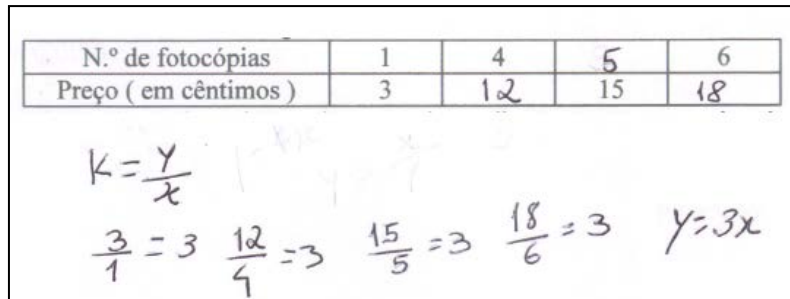 N.º de fotocópias 1 4 5 6
Preço ( em cêntimos ) 3 12 15 18
K = y/x
3/1 = 3 12/4 = 3 15/5 = 3 18/6 = 3 y = 3x